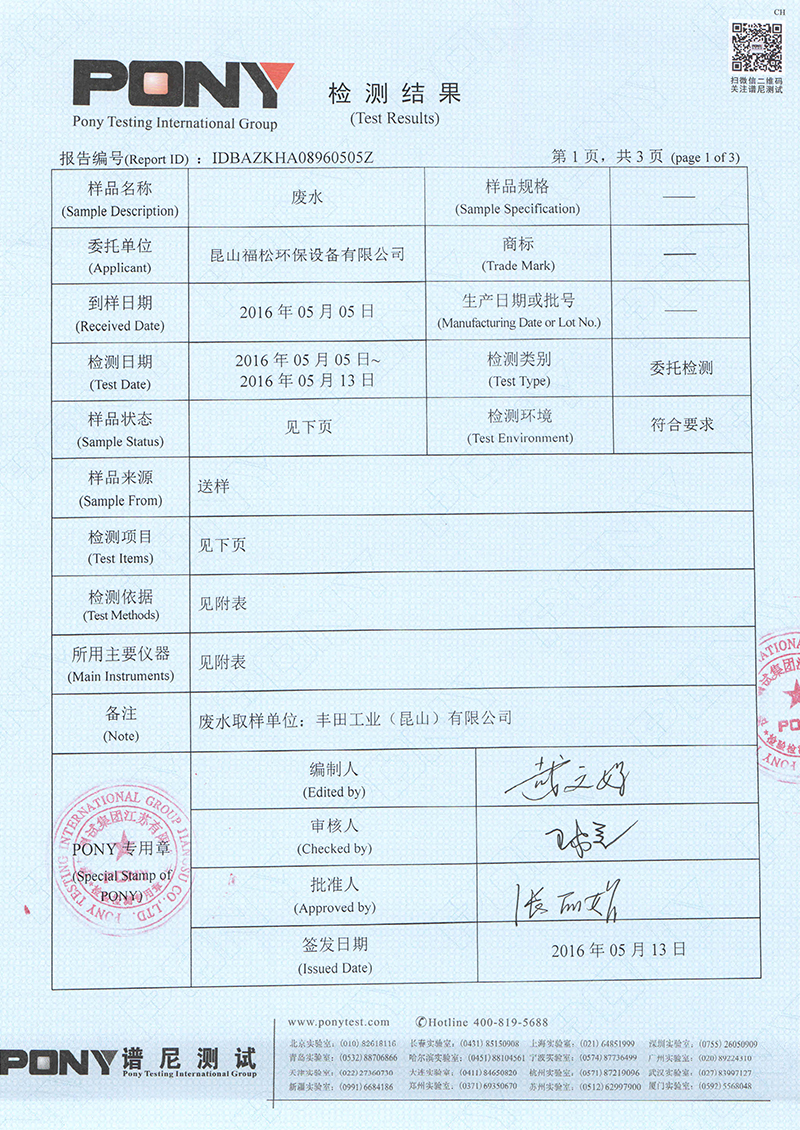 CH
扫微信二维码
关注谱尼测试
PONY
Pony Testing International Group
检测结果
(Test Results)
报告编号(Report ID) : IDBAZKHA08960505Z
第 1 页, 共 3 页 (page 1 of 3)
样品名称
(Sample Description)
废水
样品规格
(Sample Specification)
——
委托单位
(Applicant)
昆山福松环保设备有限公司
商标
(Trade Mark)
——
到样日期
(Received Date)
2016 年 05 月 05 日
生产日期或批号
(Manufacturing Date or Lot No.)
——
检测日期
(Test Date)
2016 年 05 月 05 日~
2016 年 05 月 13 日
检测类别
(Test Type)
委托检测
样品状态
(Sample Status)
见下页
检测环境
(Test Environment)
符合要求
样品来源
(Sample From)
送样
检测项目
(Test Items)
见下页
检测依据
(Test Methods)
见附表
所用主要仪器
(Main Instruments)
见附表
备注
(Note)
废水取样单位：丰田工业（昆山）有限公司
PONY 专用章
(Special Stamp of
PONY)
PONY TESTING INTERNATIONAL GROUP JIANGSU CO.,LTD.
编制人
(Edited by)
审核人
(Checked by)
批准人
(Approved by)
签发日期
(Issued Date)
2016 年 05 月 13 日
www.ponytest.com
Hotline 400-819-5688
PONY 谱尼测试
Pony Testing International Group
北京实验室: (010) 82618116 长春实验室: (0431) 85150908 上海实验室: (021) 64851999 深圳实验室: (0755) 26050909
青岛实验室: (0532) 88706866 哈尔滨实验室: (0451) 88104561 宁波实验室: (0574) 87736499 广州实验室: (020) 89224310
天津实验室: (022) 27360730 大连实验室: (0411) 84650820 杭州实验室: (0571) 87219096 武汉实验室: (027) 83997127
新疆实验室: (0991) 6684186 郑州实验室: (0371) 69350670 苏州实验室: (0512) 62997900 厦门实验室: (0592) 5568048